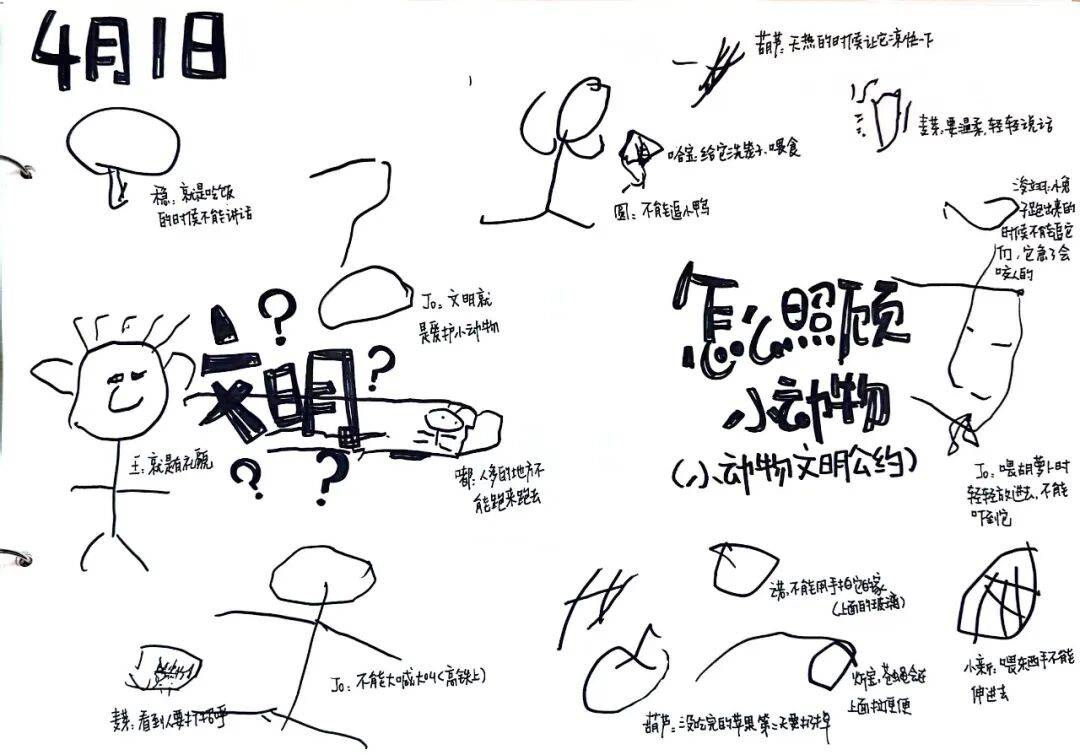 4月1日
稳：就是吃饭
的时候不能讲话
Jo：文明就
是爱护小动物
文明
？
？
？
？
王：就是有礼貌
嘟：人多的地方不
能跑来跑去
Jo：不能大喊大叫（高铁上）
看到人要打招呼
葫芦：天热的时候让它凉快一下
哈宝：给它洗笼子、喂食
圆：不能追小鸭
要温柔，轻轻说话
小兔
子跑出来的
时候不能追它
们，它急了会
咬人的
怎么照顾
小动物
（小动物文明公约）
Jo：喂胡萝卜时
轻轻放进去，不能
吓到它
诺：不能用手拍它的家
（上面的玻璃）
小新：喂东西手不能
伸进去
苍蝇会在
上面拉便便
葫芦：没吃完的苹果第二天要扔掉